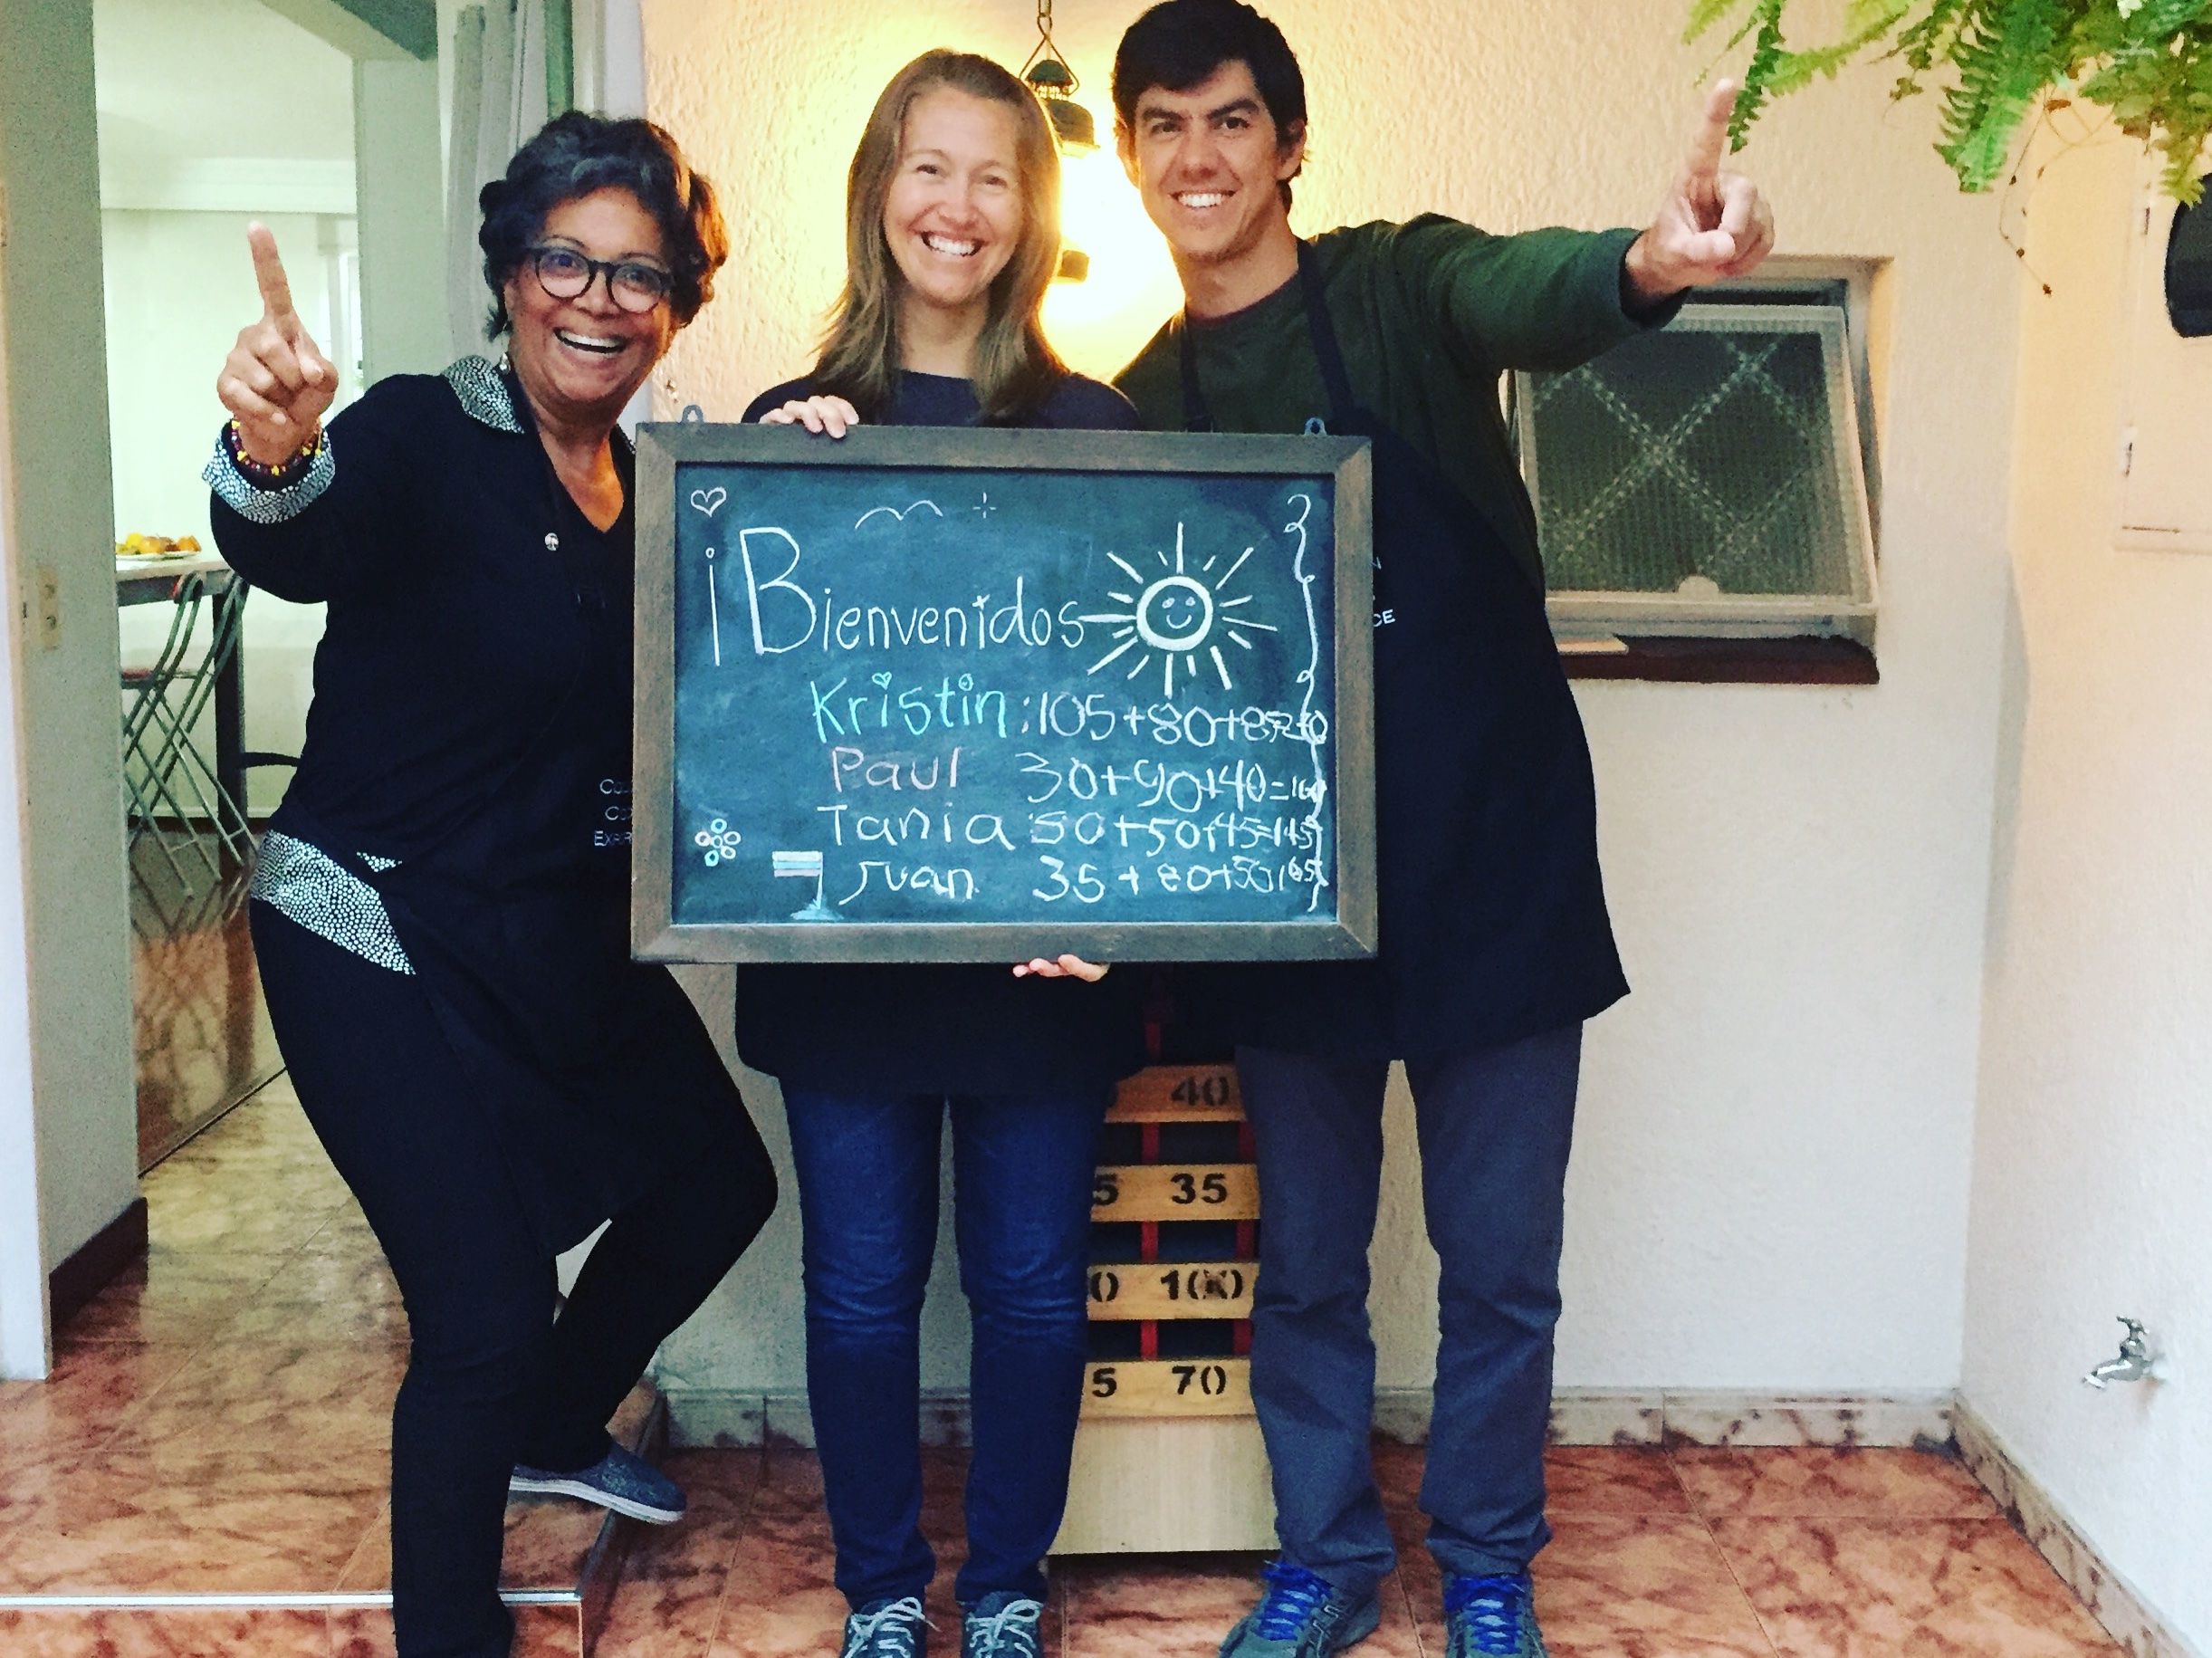 ¡Bienvenidos
Kristin: 105+80+85=270
Paul 30+90+40=160
Tania 50+50+45=145
Juan 35+80+50=165
40
5 35
0 100
5 70
CE